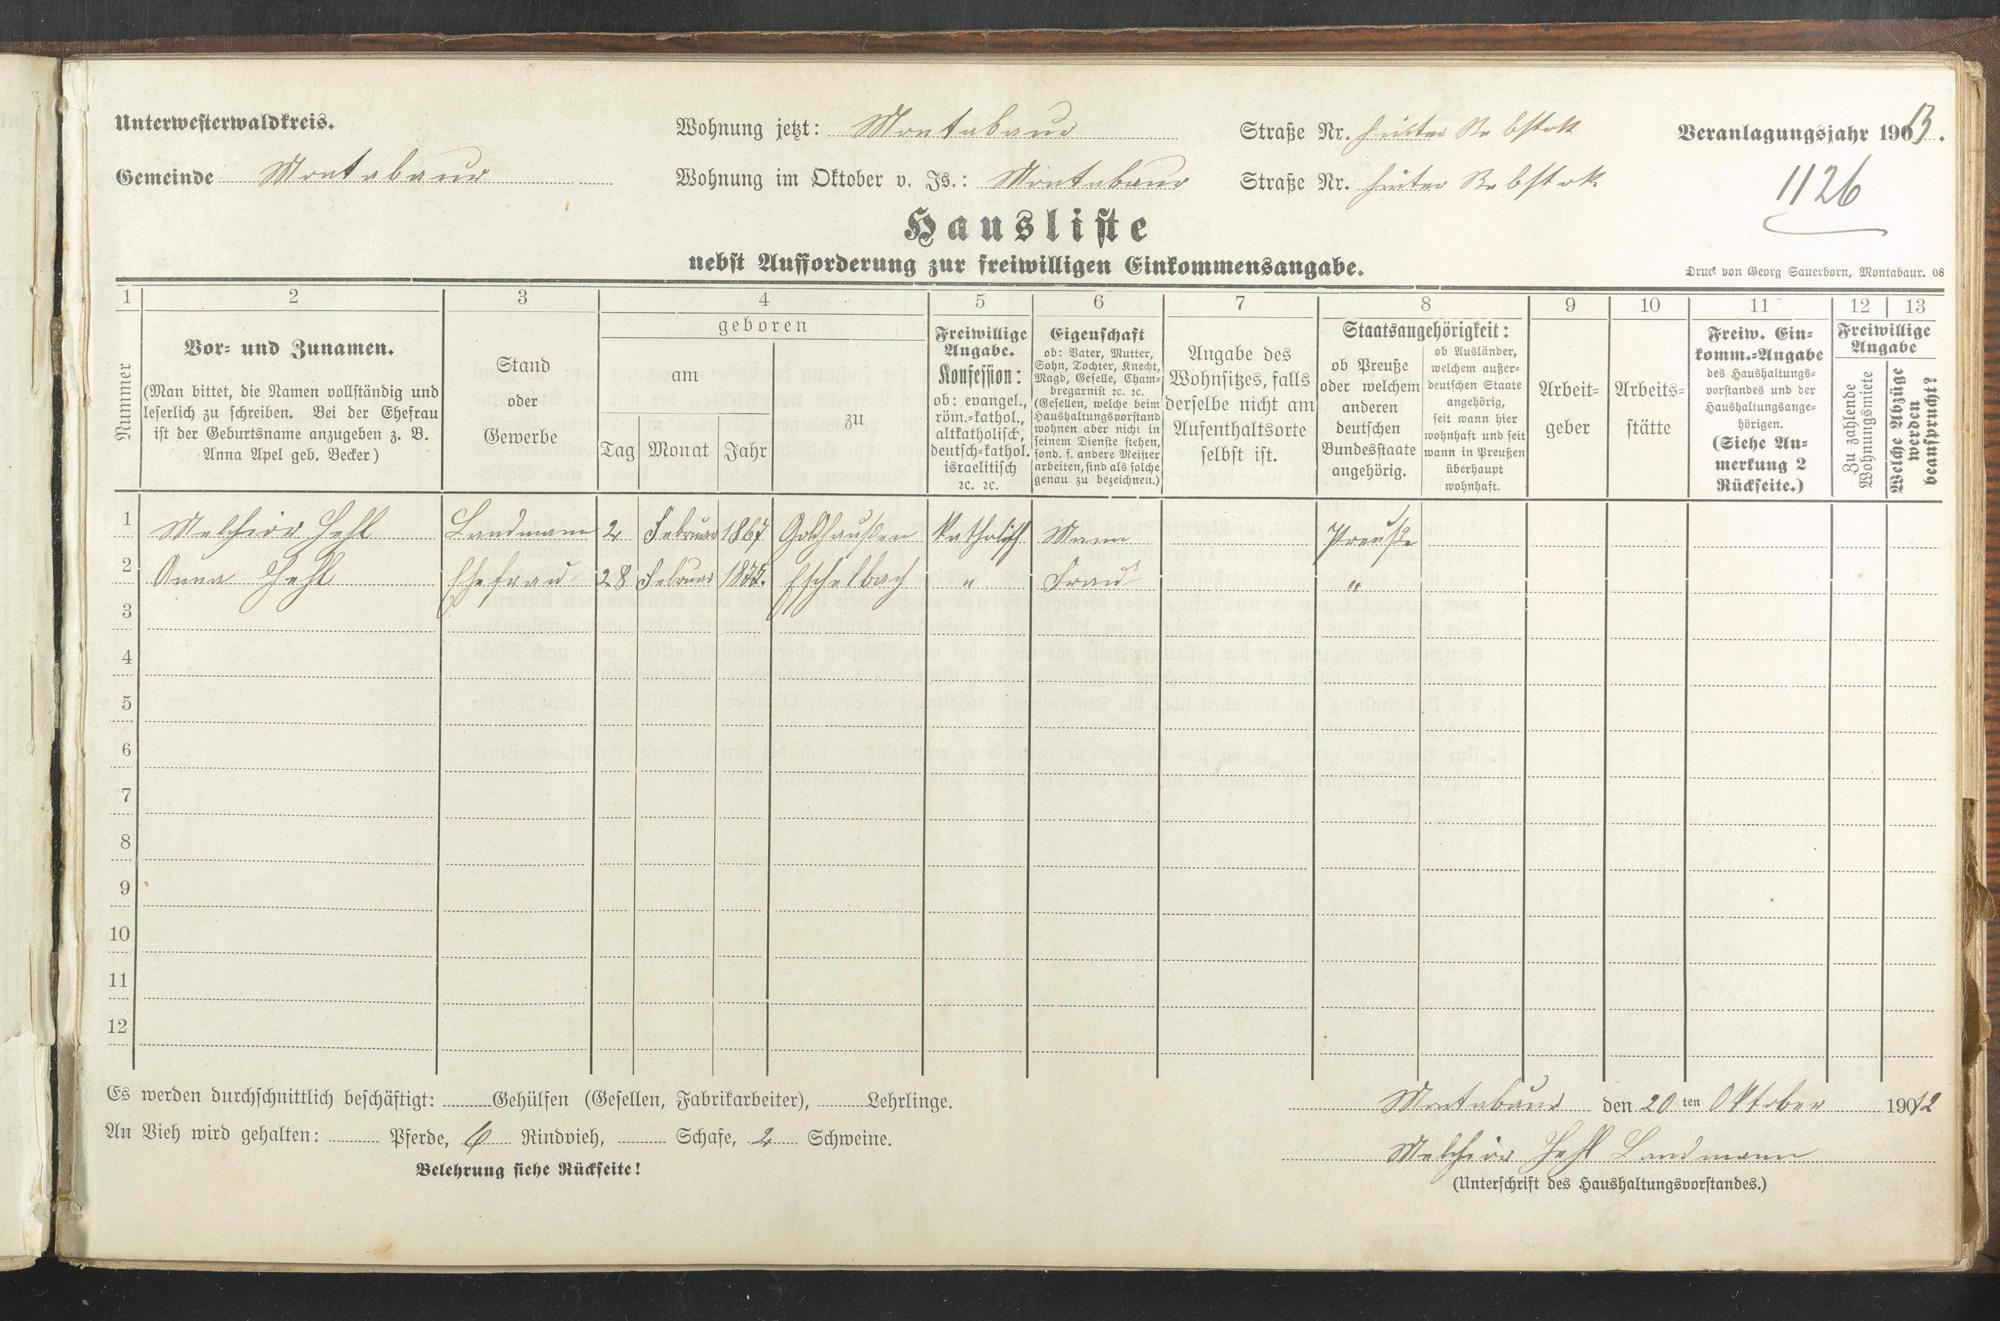 Unterwesterwaldkreis.
Wohnung jetzt: Montabaur Straße Nr. hinter Rebstok
Veranlagungsjahr 1913.
Gemeinde Montabaur
Wohnung im Oktober v. Js.: Montabaur Straße Nr. hinter Rebstok
1126
Hausliste
nebst Aufforderung zur freiwilligen Einkommensangabe.
Druck von Georg Sauerborn, Montabaur. 08
1 2 3 4 5 6 7 8 9 10 11 12 13
Nummer
Vor- und Zunamen.
(Man bittet, die Namen vollständig und
leserlich zu schreiben. Bei der Ehefrau
ist der Geburtsname anzugeben z. B.
Anna Apel geb. Becker)
Stand
oder
Gewerbe
geboren
am
Tag Monat Jahr
zu
Freiwillige
Angabe.
Konfession:
ob: evangel.,
röm.-kathol.,
altkatholisch,
deutsch-kathol.
israelitisch
ꝛc. ꝛc.
Eigenschaft
ob: Vater, Mutter,
Sohn, Tochter, Knecht,
Magd, Geselle, Cham-
bregarnist ꝛc. ꝛc.
(Gesellen, welche beim
Haushaltungsvorstand
wohnen aber nicht in
seinem Dienste stehen,
sond. f. andere Meister
arbeiten, sind als solche
genau zu bezeichnen.)
Angabe des
Wohnsitzes, falls
derselbe nicht am
Aufenthaltsorte
selbst ist.
Staatsangehörigkeit:
ob Preuße
oder welchem
anderen
deutschen
Bundesstaate
angehörig.
ob Ausländer,
welchem außer-
deutschen Staate
angehörig,
seit wann hier
wohnhaft und seit
wann in Preußen
überhaupt
wohnhaft.
Arbeit-
geber
Arbeits-
stätte
Freiw. Ein-
komm.-Angabe
des Haushaltungs-
vorstandes und der
Haushaltungsange-
hörigen.
(Siehe An-
merkung 2
Rückseite.)
Freiwillige
Angabe
Zu zahlende
Wohnungsmiete
Welche Abzüge
werden
beansprucht?
1 Melchior Hehl Landmann 2 Februar 1867 Goldhausen Katholisch Mann Preuße
2 Anna Hehl Ehefrau 28. Februar Eschelbach " Frau "
3
4
5
6
7
8
9
10
11
12
Es werden durchschnittlich beschäftigt: Gehülfen (Gesellen, Fabrikarbeiter), Lehrlinge.
Montabaur den 20 ten Oktober 1912
An Vieh wird gehalten: Pferde, 6 Rindvieh, Schafe, 2 Schweine.
Melchior Hehl Landmann
Belehrung siehe Rückseite!
(Unterschrift des Haushaltungsvorstandes.)